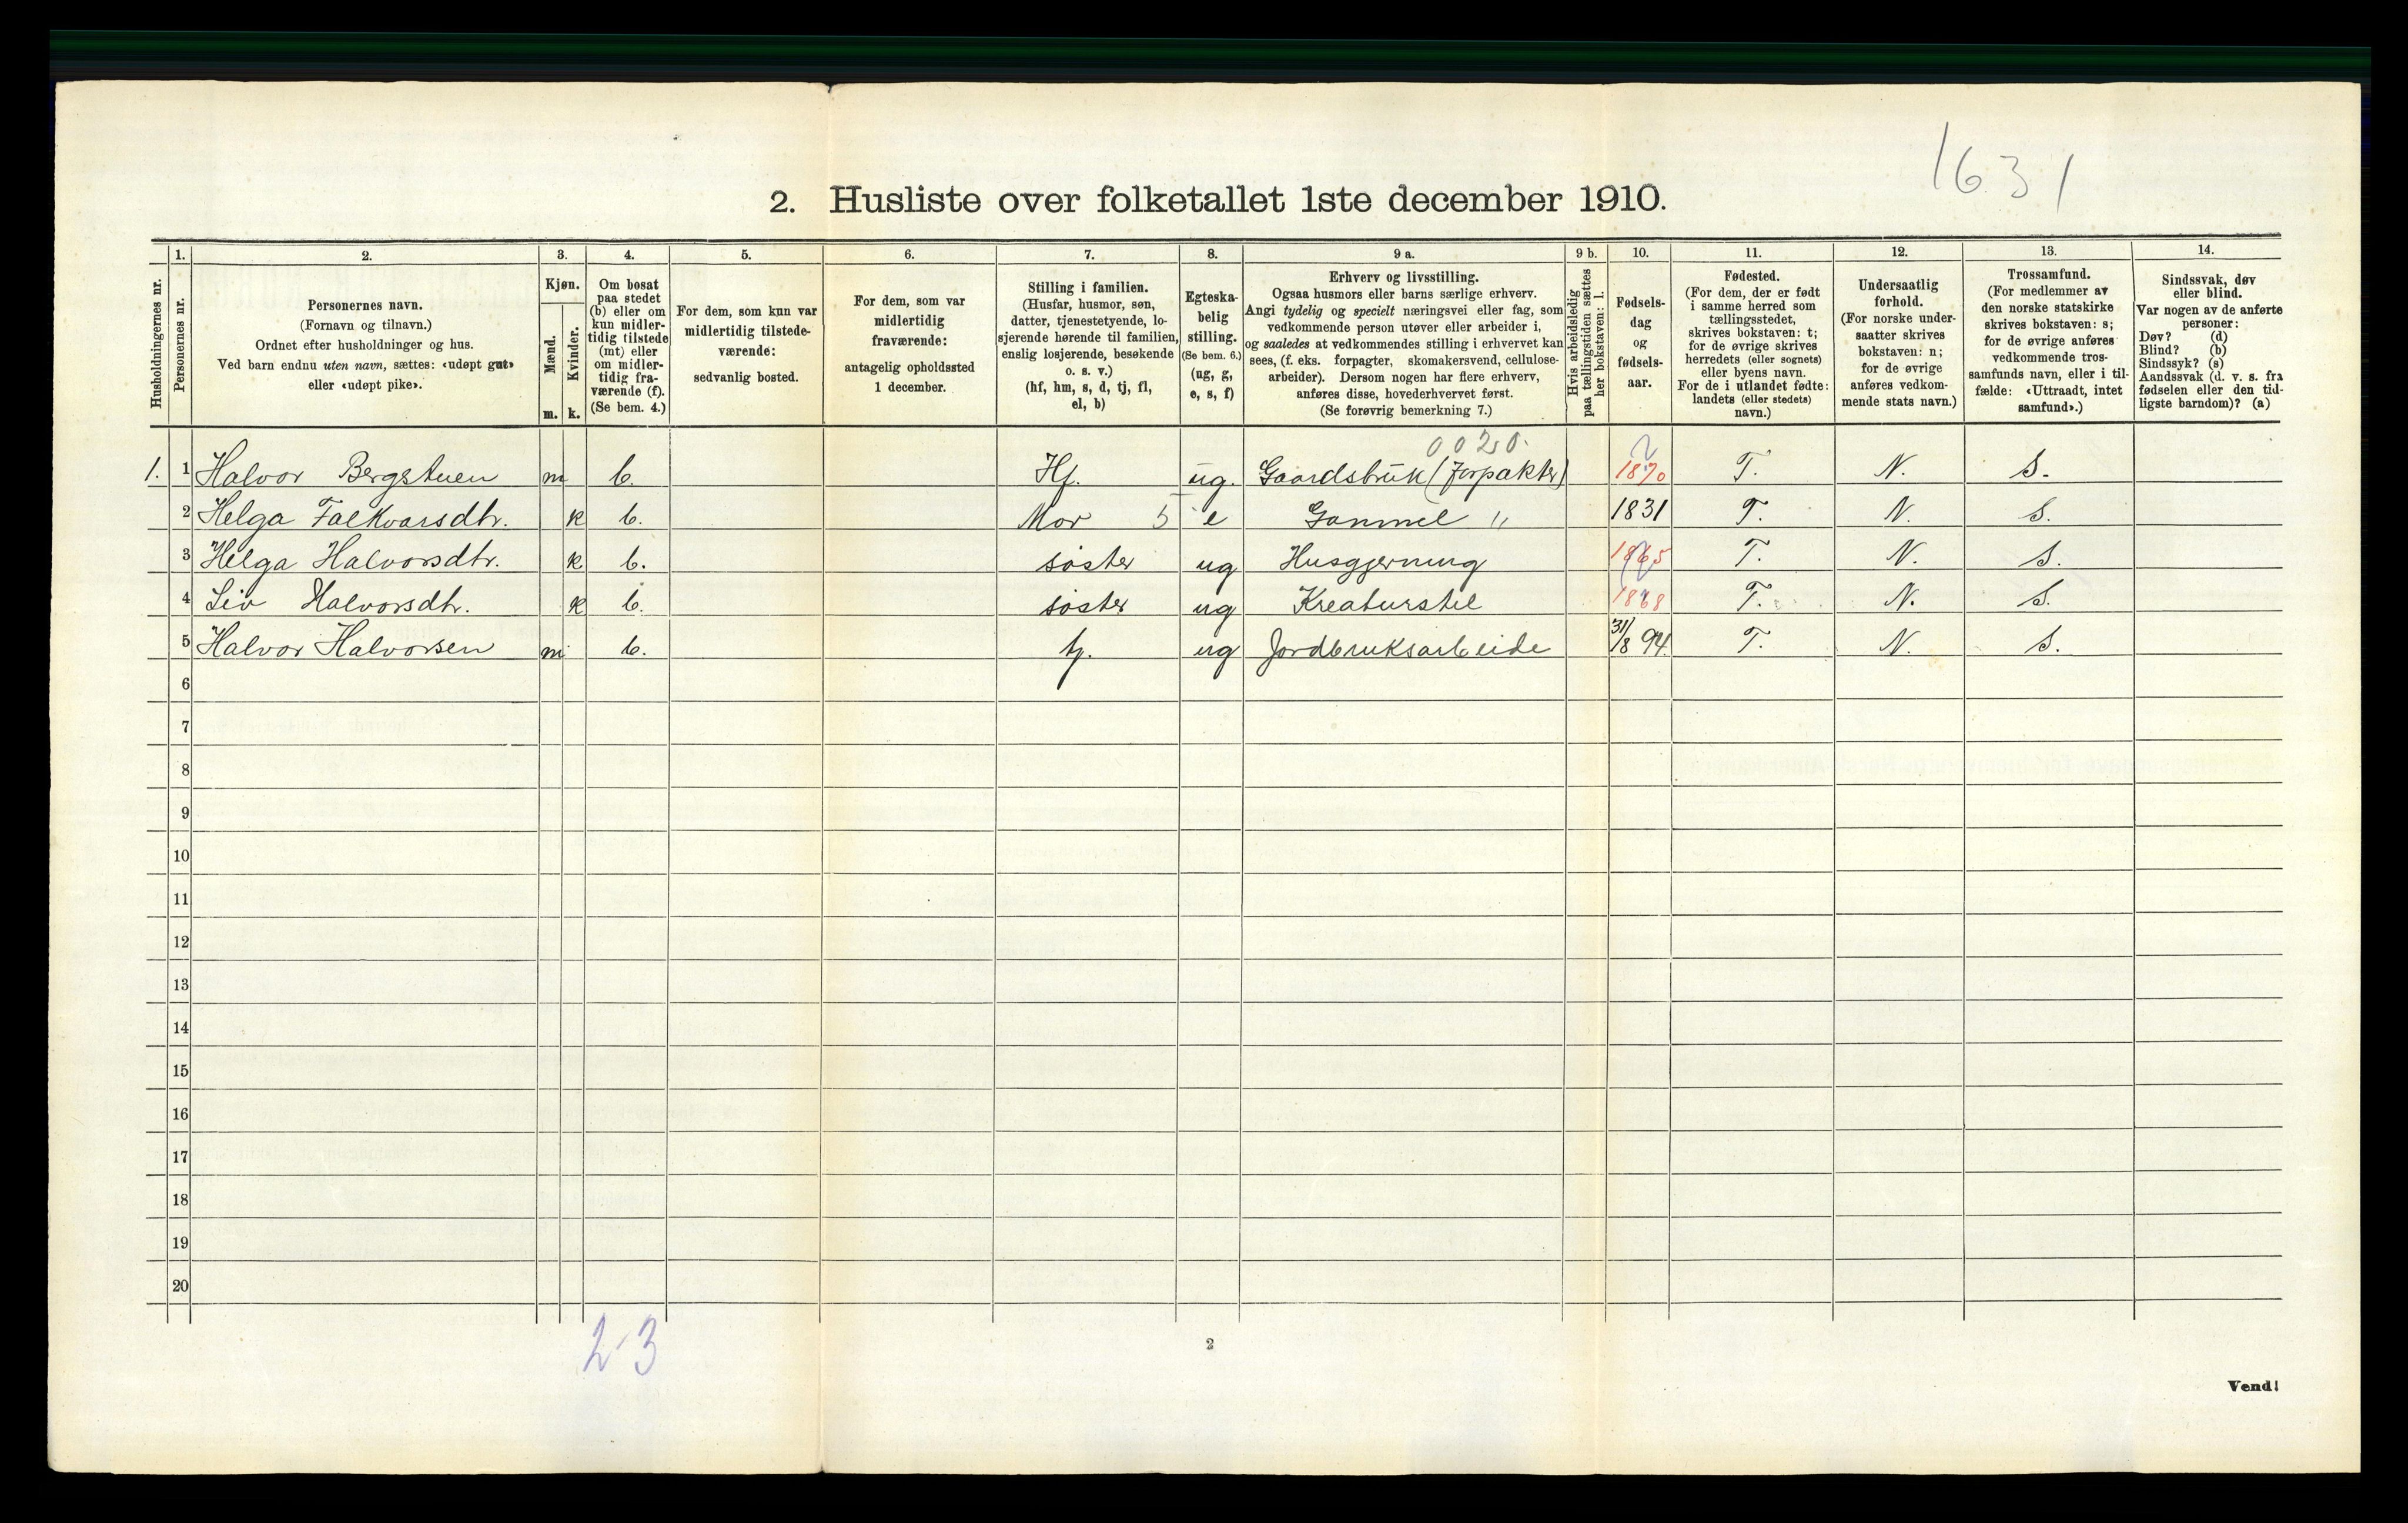 1631
2. Husliste over folketallet 1ste december 1910.
Husholdningernes nr.
1.
Personernes nr.
2.
Personernes navn.
(Fornavn og tilnavn.)
Ordnet efter husholdninger og hus.
Ved barn endnu uten navn, sættes: «udøpt gut»
eller «udøpt pike».
3.
Kjøn.
Mænd.
Kvinder.
m. k.
4.
Om bosat
paa stedet
(b) eller om
kun midler-
tidig tilstede
(mt) eller
om midler-
tidig fra-
værende (f).
(Se bem. 4.)
5.
For dem, som kun var
midlertidig tilstede-
værende:
sedvanlig bosted.
6.
For dem, som var
midlertidig
fraværende:
antagelig opholdssted
1 december.
7.
Stilling i familien.
(Husfar, husmor, søn,
datter, tjenestetyende, lo-
sjerende hørende til familien,
enslig losjerende, besøkende
o. s. v.)
(hf, hm, s, d, tj, fl,
el, b)
8.
Egteska-
belig
stilling.
(Se bem. 6.)
(ug, g,
e, s, f)
9 a.
Erhverv og livsstilling.
Ogsaa husmors eller barns særlige erhverv.
Angi tydelig og specielt næringsvei eller fag, som
vedkommende person utøver eller arbeider i,
og saaledes at vedkommendes stilling i erhvervet kan
sees, (f. eks. forpagter, skomakersvend, cellulose-
arbeider). Dersom nogen har flere erhverv,
anføres disse, hovederhvervet først.
(Se forøvrig bemerkning 7.)
9 b.
Hvis arbeidsledig
paa tællingstiden sættes
her bokstaven: l.
10.
Fødsels-
dag
og
fødsels-
aar.
11.
Fødested.
(For dem, der er født
i samme herred som
tællingsstedet,
skrives bokstaven: t;
for de øvrige skrives
herredets (eller sognets)
eller byens navn.
For de i utlandet fødte:
landets (eller stedets)
navn.)
12.
Undersaatlig
forhold.
(For norske under-
saatter skrives
bokstaven: n;
for de øvrige
anføres vedkom-
mende stats navn.)
13.
Trossamfund.
(For medlemmer av
den norske statskirke
skrives bokstaven: s;
for de øvrige anføres
vedkommende tros-
samfunds navn, eller i til-
fælde: «Uttraadt, intet
samfund».)
14.
Sindssvak, døv
eller blind.
Var nogen av de anførte
personer:
Døv? (d)
Blind? (b)
Sindssyk? (s)
Aandssvak (d. v. s. fra
fødselen eller den tid-
ligste barndom)? (a)
1. 1 Halvor Bergstuen m b. Hf. ug. Gaardsbruk (Forpakter) 1870 T. N. S.
2 Helga Falkvarsdtr. k b. Mor 5 e Gammel " 1831 T. N. S.
3 Helga Halvorsdtr. k b. søster ug Husgjerning 1865 T. N. S.
4 Liv Halvorsdtr. k b. søster ug Kreaturstel 1868 T. N. S.
5 Halvor Halvorsen m b. tj. ug Jordbruksarbeide 31/8 94. T. N. S.
6
7
8
9
10
11
12
13
14
15
16
17
18
19
20
2-3
2
Vend!